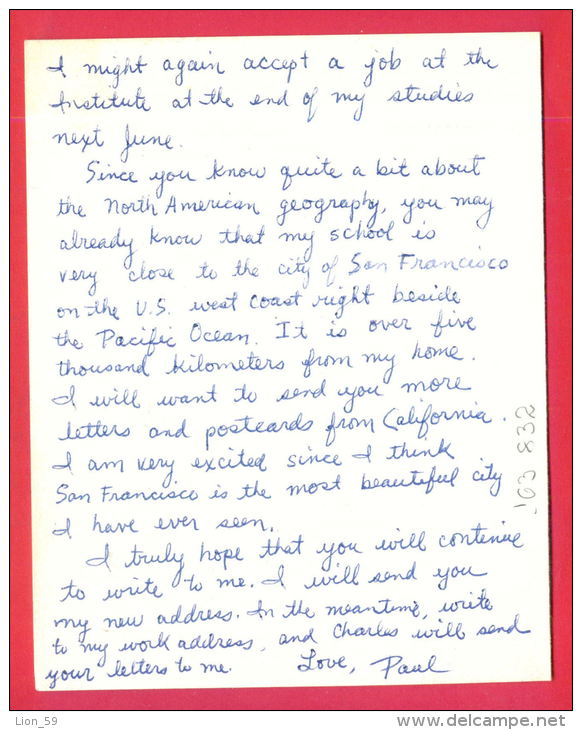 I might again accept a job at the
Institute at the end of my studies
next June.
Since you know quite a bit about
the North American geography, you may
already know that my school is
very close to the city of San Francisco
on the U.S. west coast right beside
the Pacific Ocean. It is over five
thousand kilometers from my home.
I will want to send you more
letters and postcards from California.
I am very excited since I think
San Francisco is the most beautiful city
I have ever seen.
I truly hope that you will continue
to write to me. I will send you
my new address. In the meantime, write
to my work address, and Charles will send
your letters to me. Love, Paul
'03 832
Lion_59
www.delcampe.net